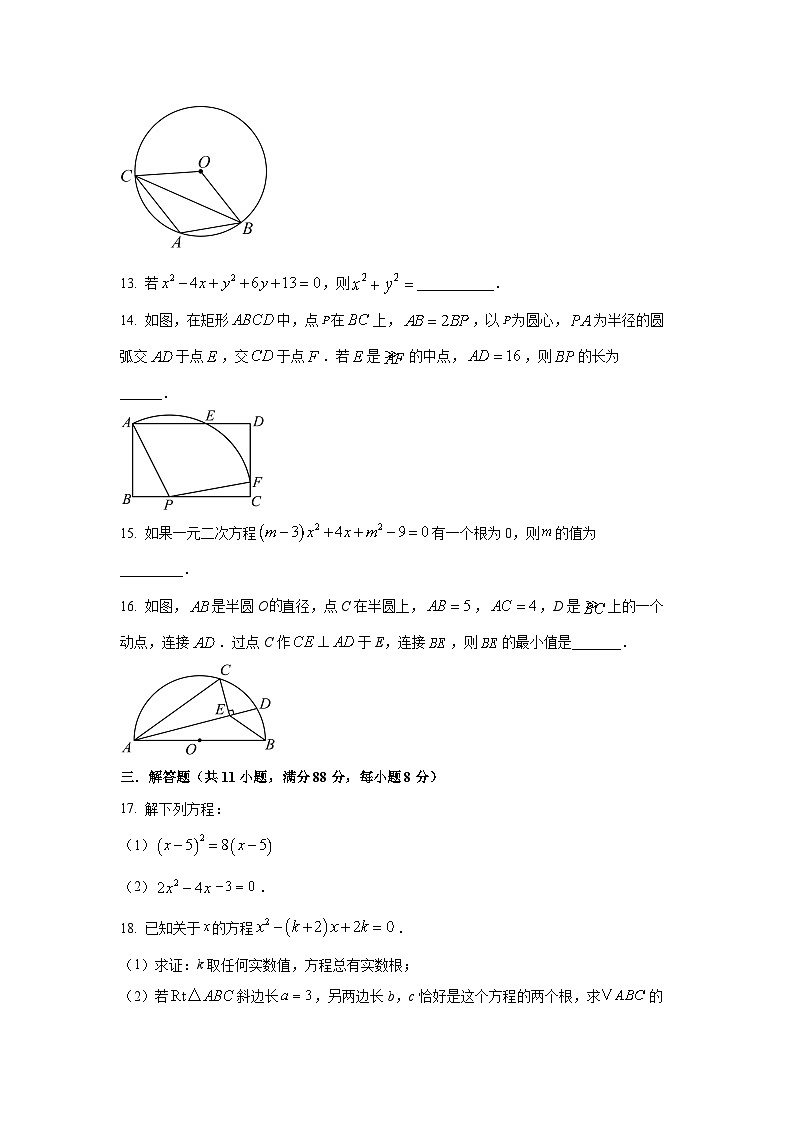 O
C
B
A
13. 若x²－4x＋y²＋6y＋13＝0，则x²＋y²＝___________．
14. 如图，在矩形ABCD中，点P在BC上，AB＝2BP，以P为圆心，PA为半径的圆
弧交AD于点E，交CD于点F．若E是AF的中点，AD＝16，则BP的长为
______．
A E D
F
B P C
15. 如果一元二次方程(m－3)x²＋4x＋m²－9＝0有一个根为0，则m的值为
_________．
16. 如图，AB是半圆O的直径，点C在半圆上，AB＝5，AC＝4，D是BC上的一个
动点，连接AD．过点C作CE⊥AD于E，连接BE，则BE的最小值是_______．
C
E D
A O B
三．解答题（共11小题，满分88分，每小题8分）
17. 解下列方程：
（1）(x－5)²＝8(x－5)
（2）2x²－4x－3＝0．
18. 已知关于x的方程x²－(k＋2)x＋2k＝0．
（1）求证：k取任何实数值，方程总有实数根；
（2）若Rt△ABC斜边长a＝3，另两边长b，c恰好是这个方程的两个根，求VABC的